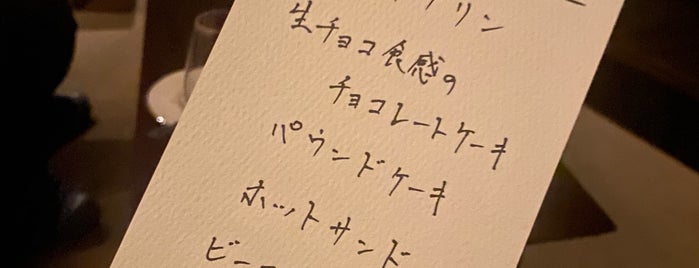 生チョコ食感の
チョコレートケーキ
パウンドケーキ
ホットサンド